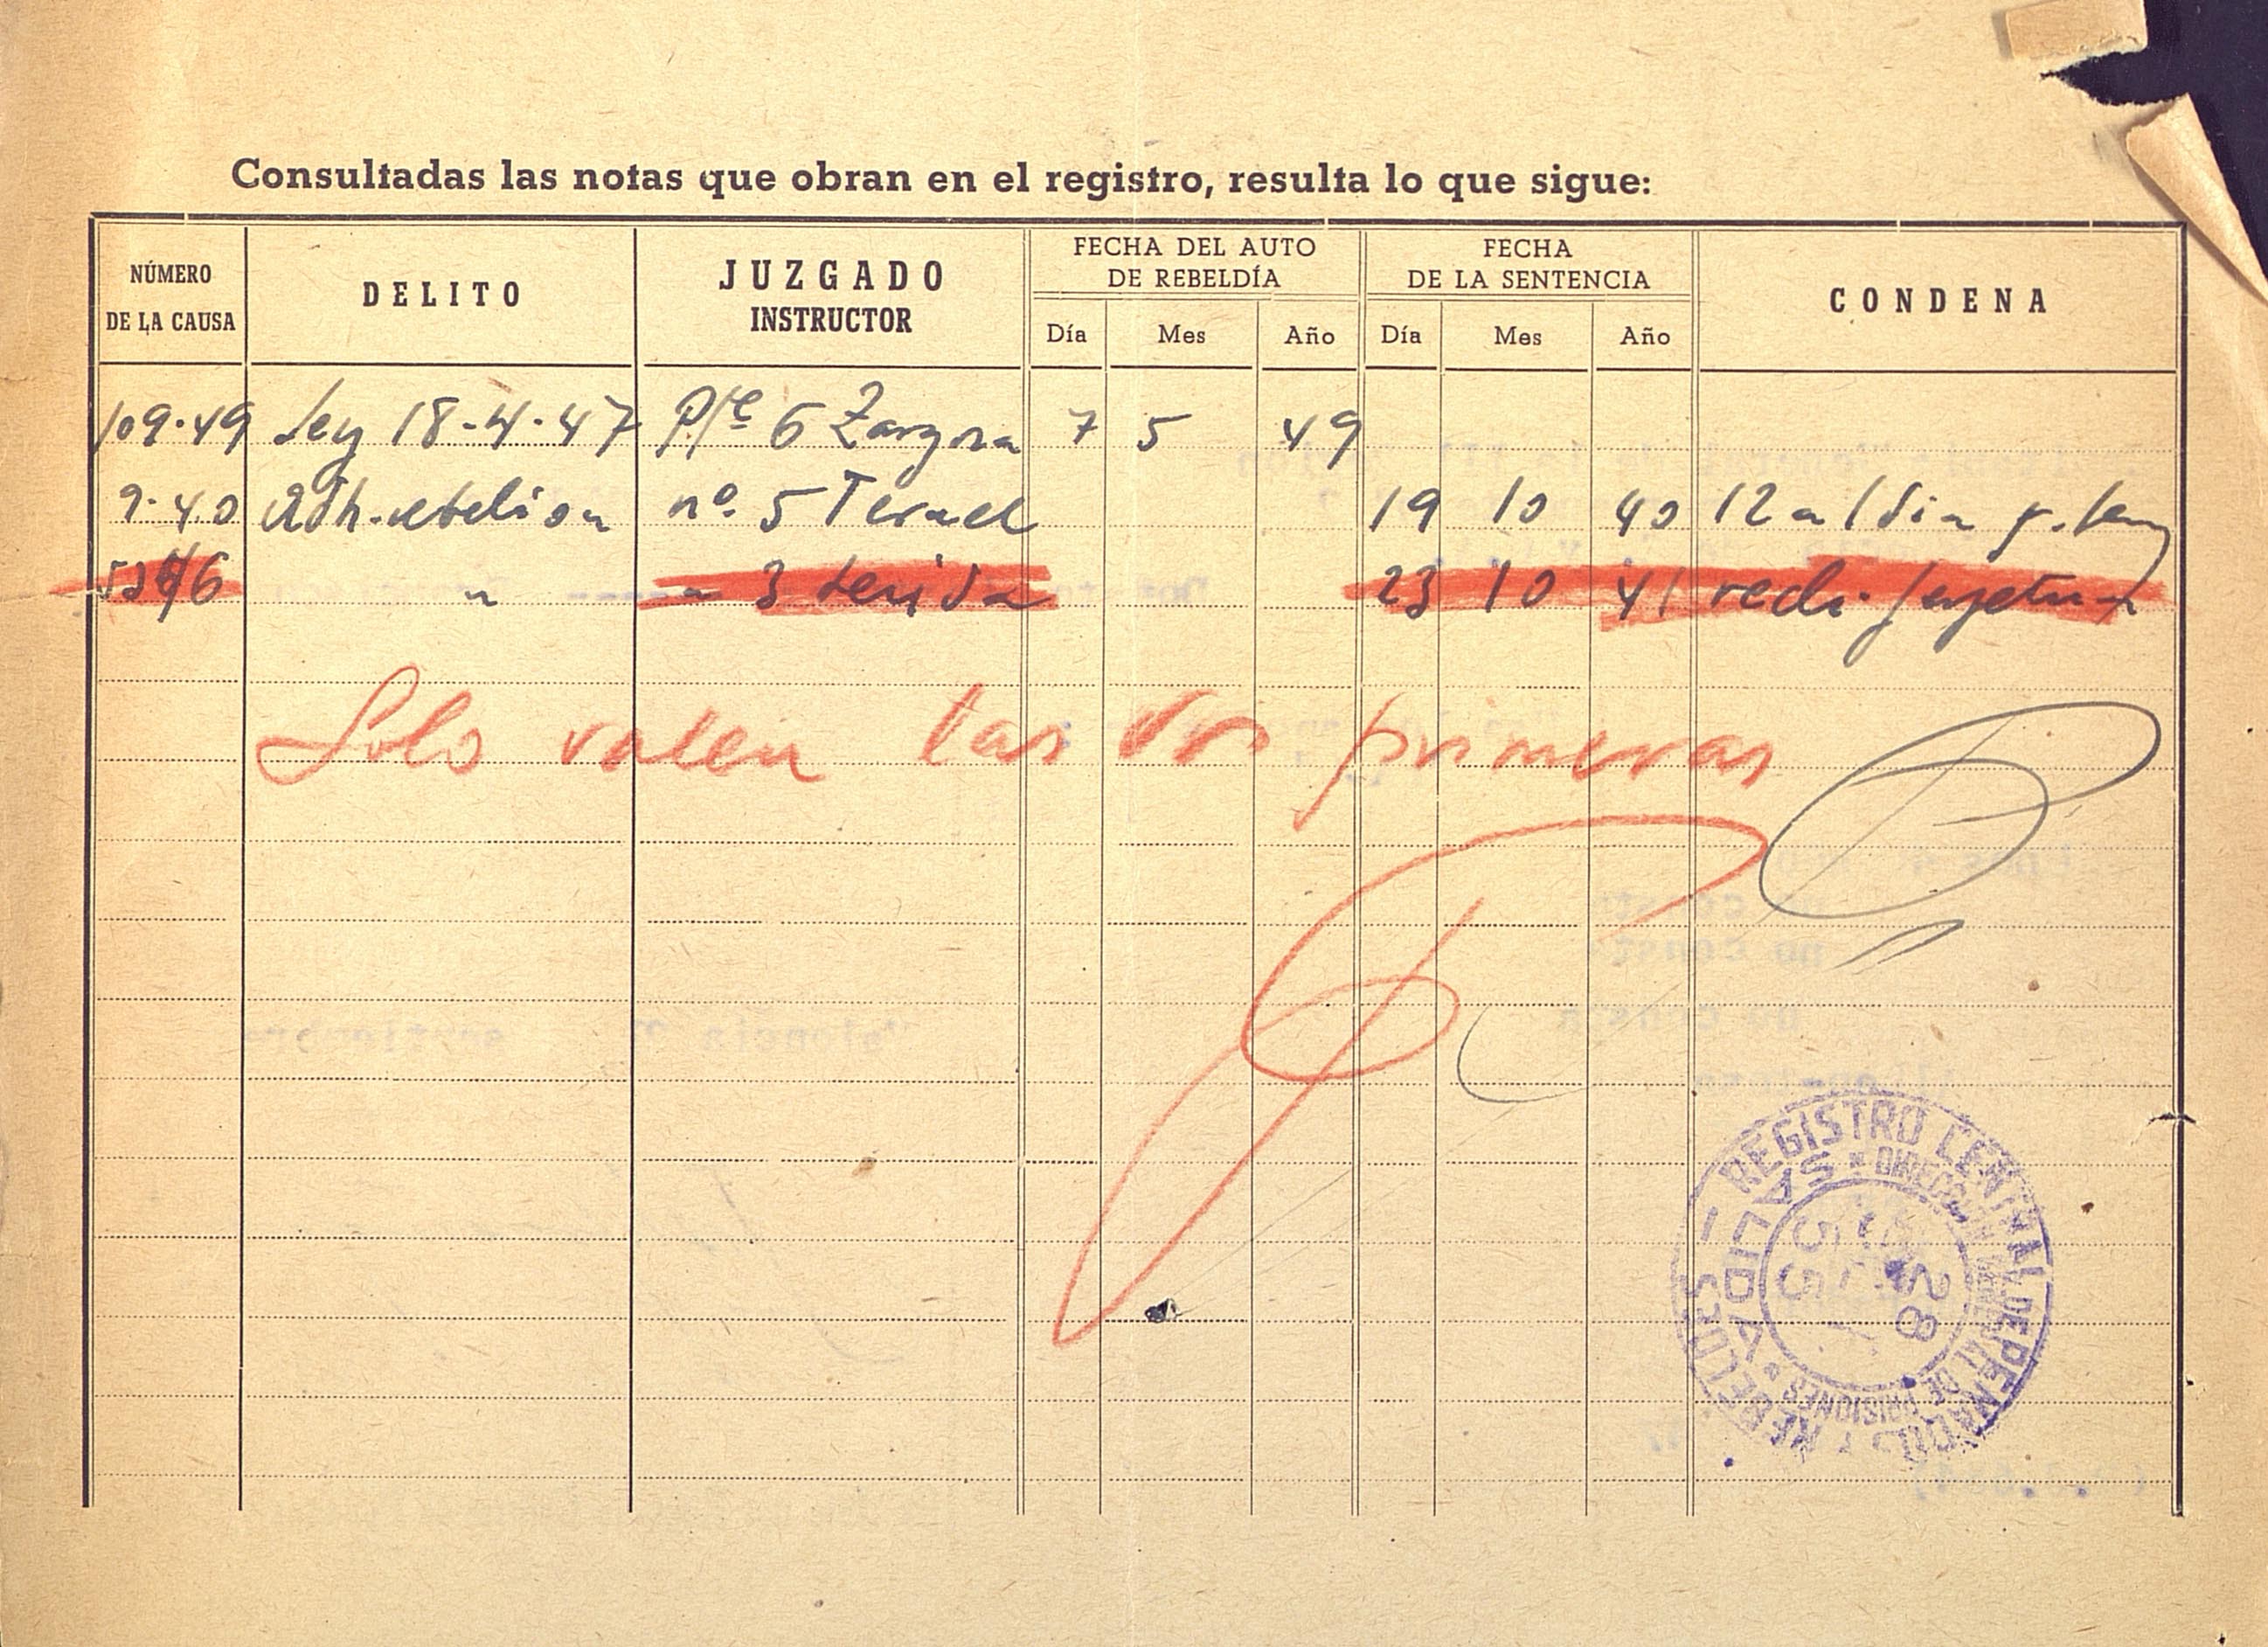 Consultadas las notas que obran en el registro, resulta lo que sigue:
NÚMERO DE LA CAUSA DELITO JUZGADO INSTRUCTOR FECHA DEL AUTO DE REBELDÍA FECHA DE LA SENTENCIA CONDENA
Día Mes Año Día Mes Año
109-49 Ley 18-4-47 6 Zargoza 7 5 49
9-40 Adh. rebelion nº 5 Teruel 19 10 40 12 a 1 dia
" " 3 Lerida 23 10 41
Solo valen las dos primeras
REGISTRO CENTRAL DE PENADOS Y REBELDES
DIRECCIÓN GENERAL DE PRISIONES
SALIDA
28
55